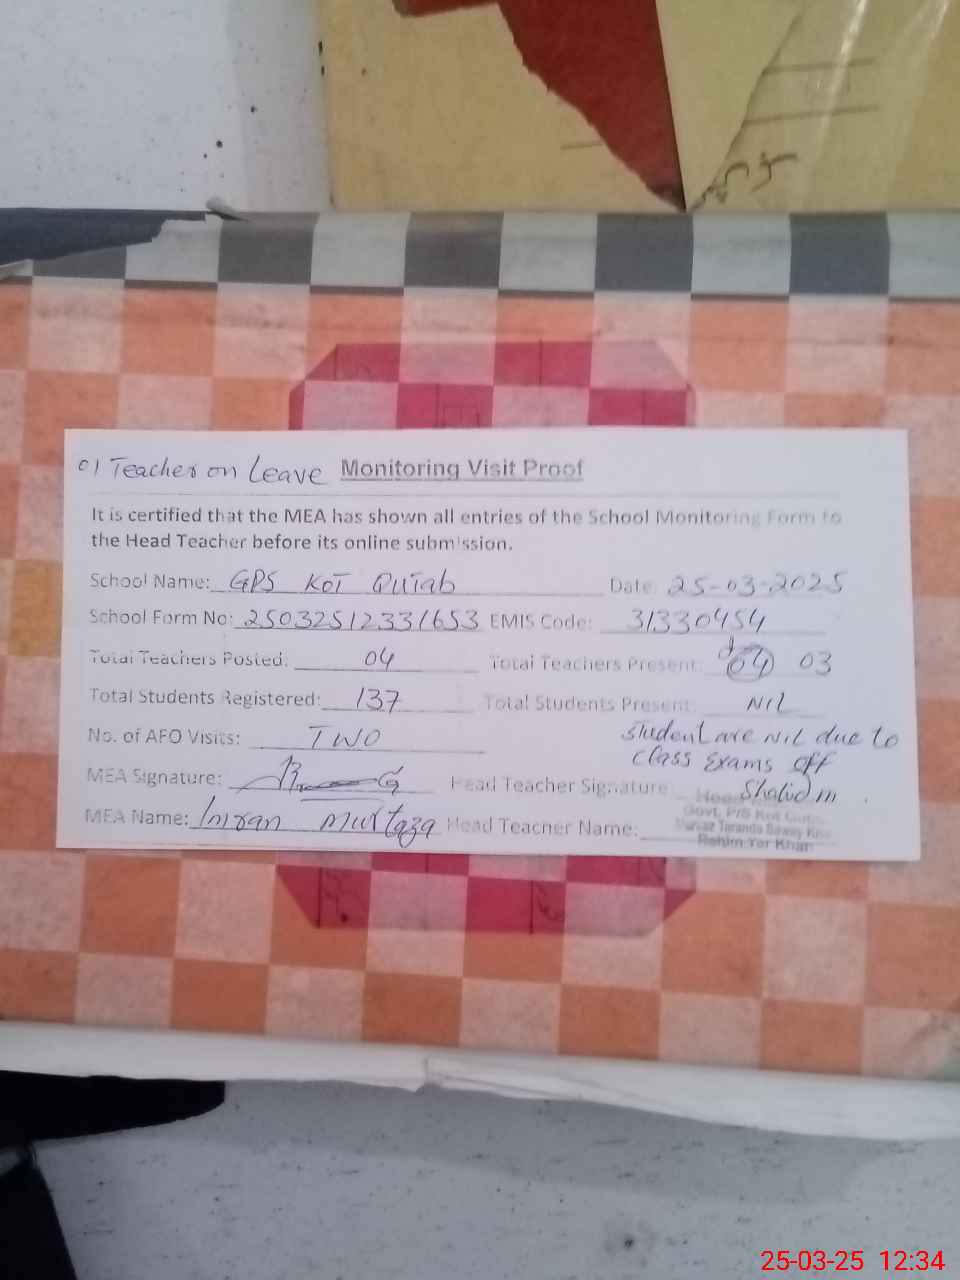 01 Teacher on Leave Monitoring Visit Proof
It is certified that the MEA has shown all entries of the School Monitoring Form to
the Head Teacher before its online submission.
School Name: GPS Kot Qutab Date: 25-03-2025
School Form No: 25032512331653 EMIS Code: 31330454
Total Teachers Posted: 04 Total Teachers Present: 04 03
Total Students Registered: 137 Total Students Present: NIL
No. of AFO Visits: TWO
Student are NIL due to
class Exams off
MEA Signature: Head Teacher Signature
MEA Name: Imran Murtaza Head Teacher Name:
Govt. P/S Kot
Rahim Yar Khan
25-03-25 12:34